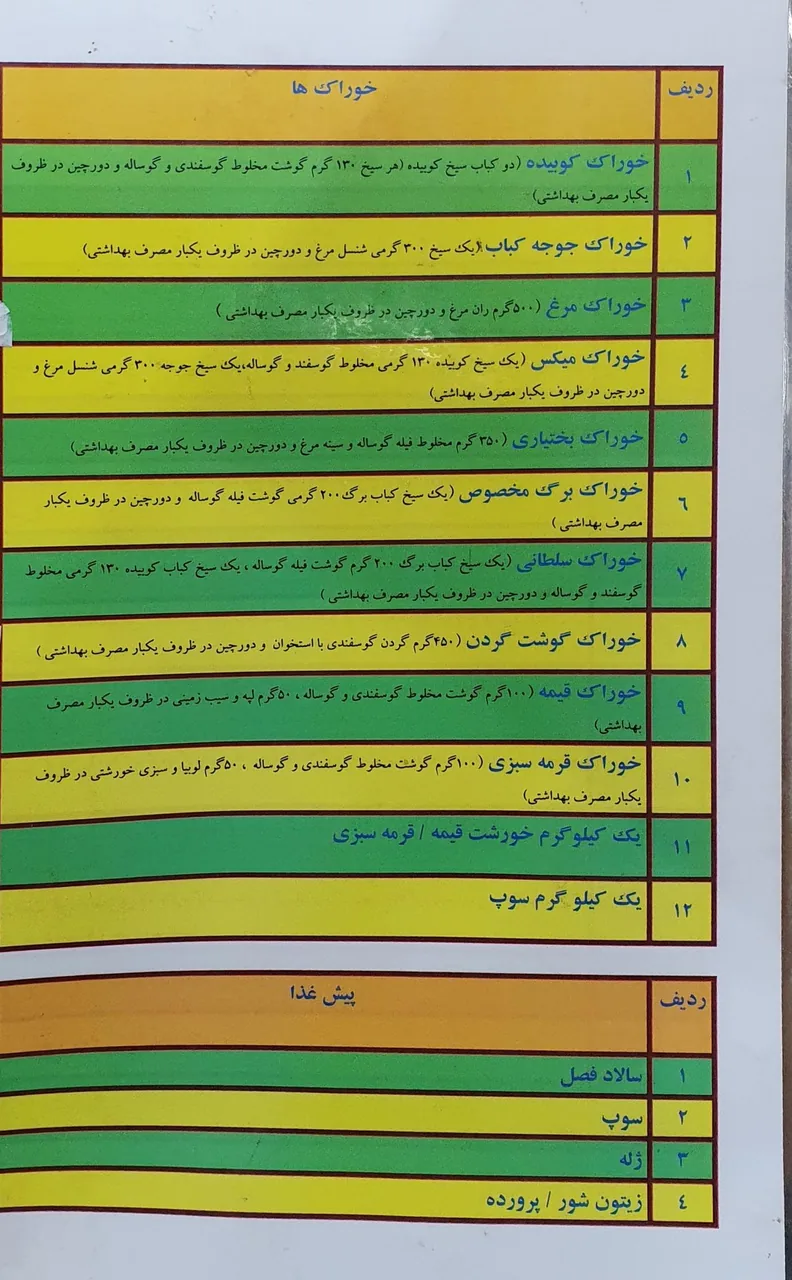 ردیف خوراک ها
۱ خوراک کوبیده (دو کباب سیخ کوبیده (هر سیخ ۱۳۰ گرم گوشت مخلوط گوسفندی و گوساله و دورچین در ظروف
یکبار مصرف بهداشتی)
۲ خوراک جوجه کباب (یک سیخ ۳۰۰ گرمی شنسل مرغ و دورچین در ظروف یکبار مصرف بهداشتی)
۳ خوراک مرغ (۵۰۰گرم ران مرغ و دورچین در ظروف یکبار مصرف بهداشتی )
٤ خوراک میکس (یک سیخ کوبیده ۱۳۰ گرمی مخلوط گوسفند و گوساله،یک سیخ جوجه ۳۰۰ گرمی شنسل مرغ و
دورچین در ظروف یکبار مصرف بهداشتی)
۵ خوراک بختیاری (۳۵۰ گرم مخلوط فیله گوساله و سینه مرغ و دورچین در ظروف یکبار مصرف بهداشتی)
٦ خوراک برگ مخصوص (یک سیخ کباب برگ۲۰۰ گرمی گوشت فیله گوساله و دورچین در ظروف یکبار
مصرف بهداشتی )
۷ خوراک سلطانی (یک سیخ کباب برگ ۲۰۰ گرم گوشت فیله گوساله ، یک سیخ کباب کوبیده ۱۳۰ گرمی مخلوط
گوسفند و گوساله و دورچین در ظروف یکبار مصرف بهداشتی )
۸ خوراک گوشت گردن (۴۵۰گرم گردن گوسفندی با استخوان و دورچین در ظروف یکبار مصرف بهداشتی )
۹ خوراک قیمه (۱۰۰گرم گوشت مخلوط گوسفندی و گوساله ، ۵۰گرم لپه و سیب زمینی در ظروف یکبار مصرف
بهداشتی)
۱۰ خوراک قرمه سبزی (۱۰۰گرم گوشت مخلوط گوسفندی و گوساله ، ۵۰گرم لوبیا و سبزی خورشتی در ظروف
یکبار مصرف بهداشتی)
۱۱ یک کیلوگرم خورشت قیمه / قرمه سبزی
۱۲ یک کیلو گرم سوپ
ردیف پیش غذا
۱ سالاد فصل
۲ سوپ
۳ ژله
٤ زیتون شور / پرورده